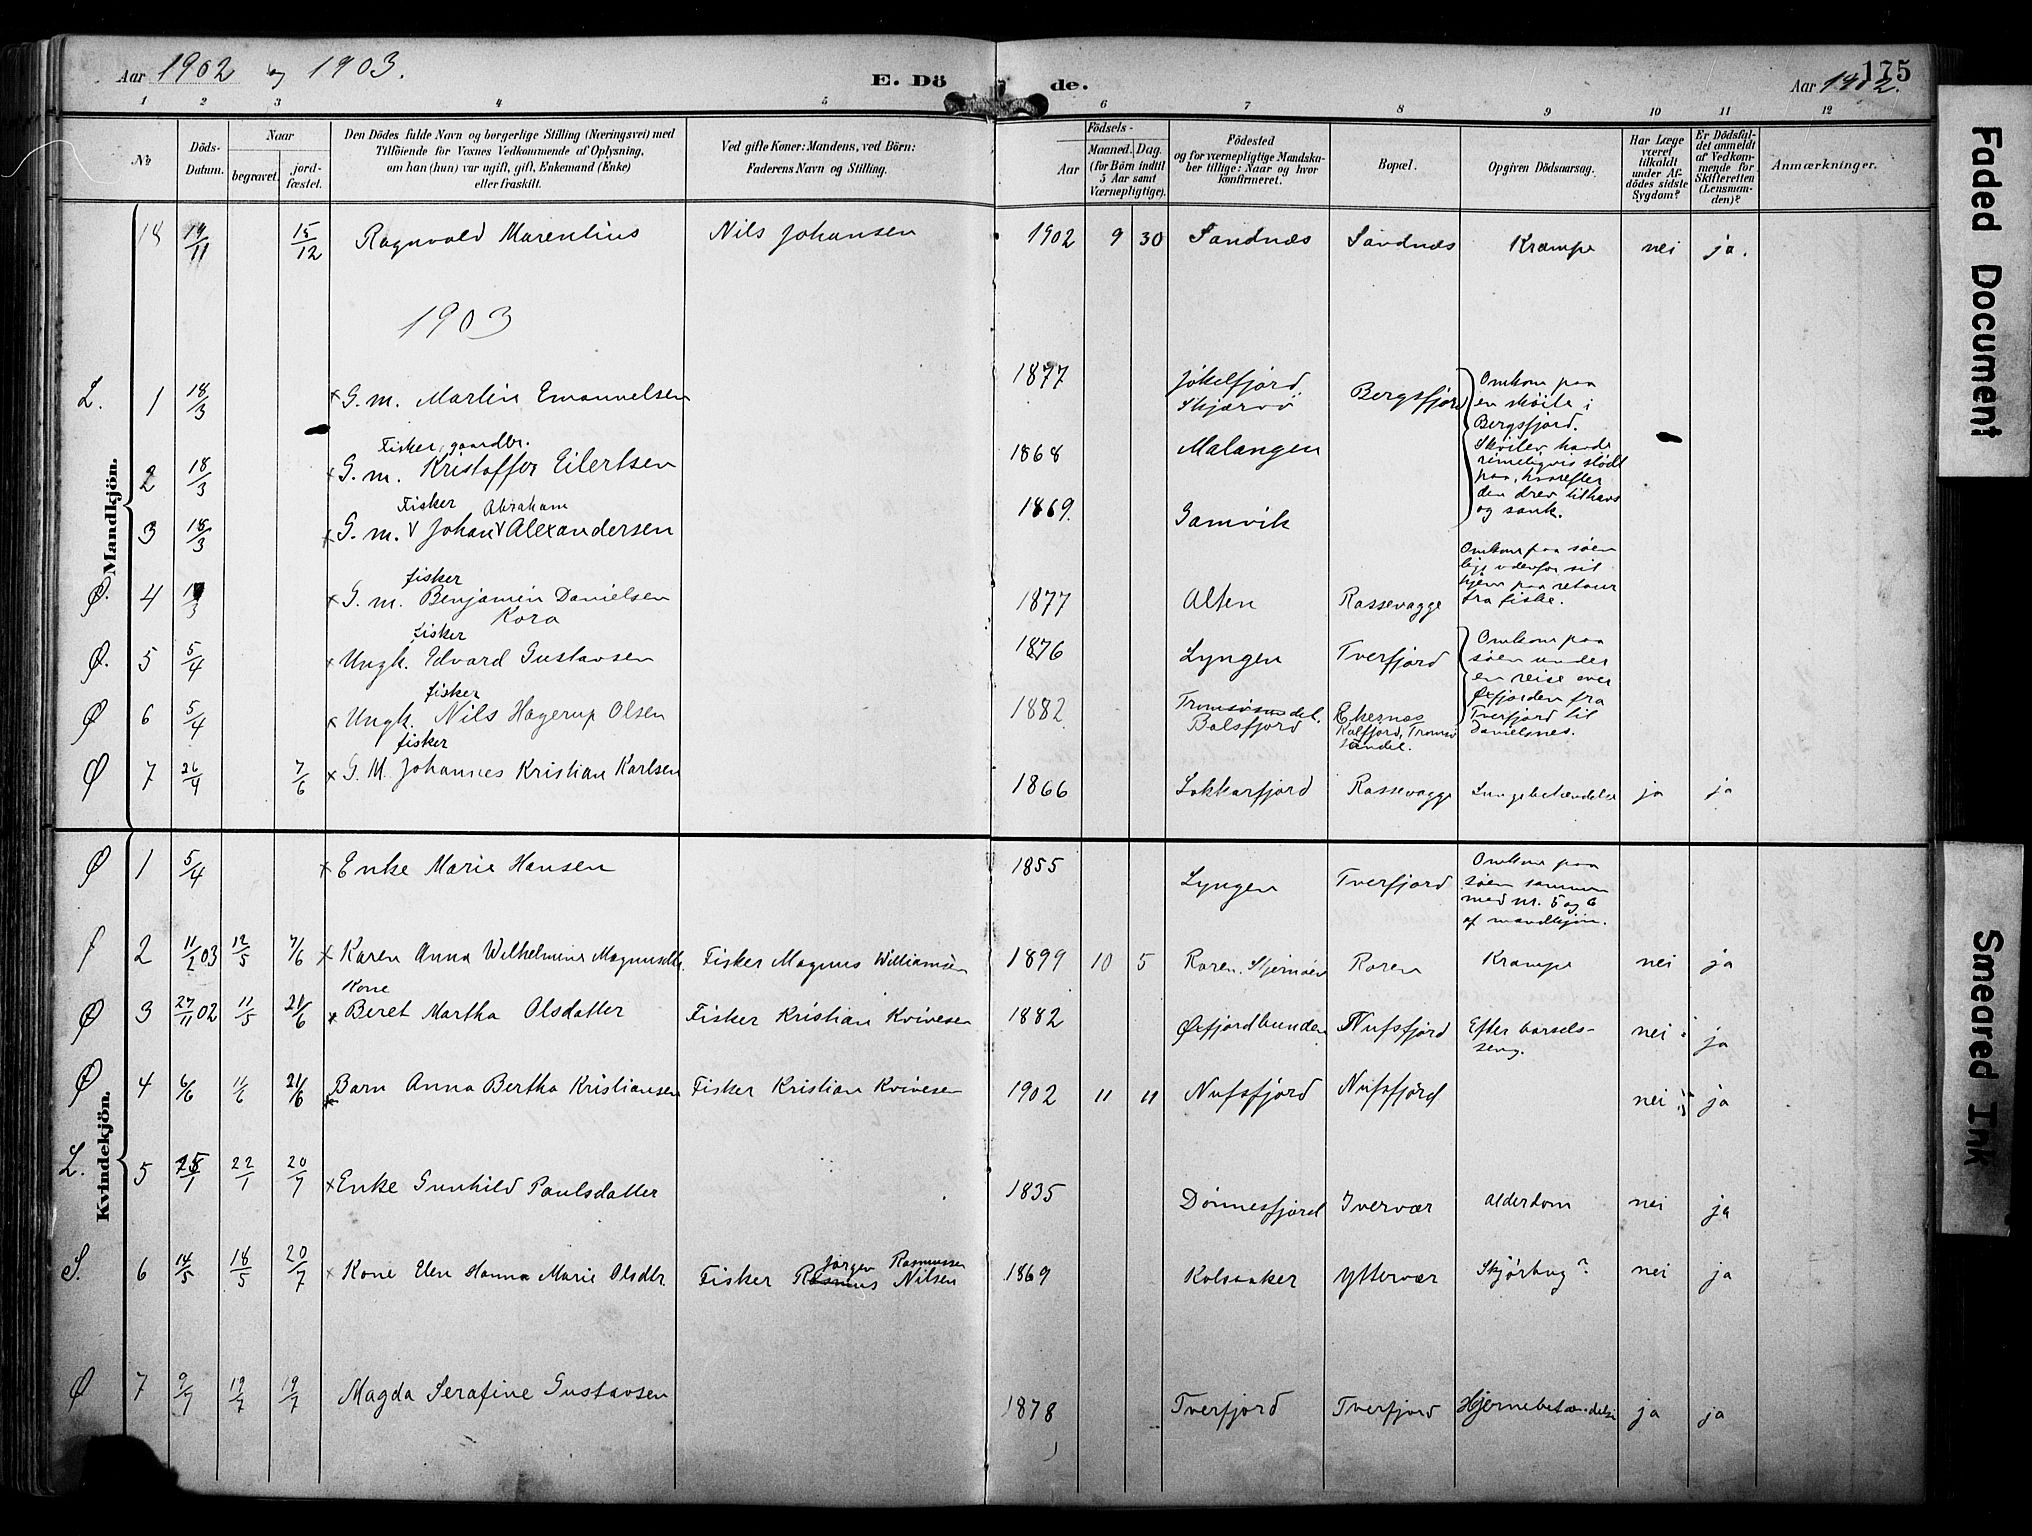 Aar 1902 og 1903.
E. Dö de.
175
Aar 1902.
1 2 3 4 5 6 7 8 9 10 11 12
No
Döds-Datum.
Naar
begravet.
jord-fæstet.
Den Dödes fulde Navn og borgerlige Stilling (Næringsvei) med
Tilföiende for Voxnes Vedkommende af Oplysning,
om han (hun) var ugift, gift, Enkemand (Enke)
eller fraskilt.
Ved gifte Koner: Mandens, ved Börn:
Faderens Navn og Stilling.
Födsels-
Aar
Maaned. Dag.
(for Börn indtil
5 Aar samt
Værnepligtige).
Födested
og for værnepligtige Mandska-
ber tillige: Naar og hvor
konfirmeret.
Bopæl.
Opgiven Dödsaarsag.
Har Læge
været
tilkaldt
under Af-
dödes sidste
Sygdom?
Er Dödsfal-
det anmeldt
af Vedkom-
mende for
Skifteretten
(Lensman-
den)?
Anmærkninger.
Mandkjön.
18 19/11 15/12 Ragnvald Marentius Nils Johansen 1902 9 30 Sandnæs Sandnæs Krampe nei ja.
1903
L. 1 18/3 × G. m. Martin Emanuelsen 1877 Jökelfjord Skjærvö Bergsfjord
Omkom paa
en sköite i
Bergsfjord.
Sköiten havde
rimeligvis stödt
paa, hvorefter
den drev tilhavs
og sank.
Fisker, gaardbr.
2 18/3 × G. m. Kristoffer Eilertsen 1868 Malangen
Fisker Abraham
3 18/3 × G. m. V Johan V Alexandersen 1869. Gamvik
fisker
Ø. 4 /3 × G. m. Benjamin Danielsen 1877 Alten Rassevagge
Kora
Omkom paa søen
udenfor sit
hjem paa retour
fra fiske.
fisker
Ø. 5 5/4 × Ungk. Edvard Gustavsen 1876 Lyngen Tverfjord
Omkom paa
søen under
en reise over
Øxfjorden fra
Tverfjord til
Danielsnes.
fisker
Ø 6 5/4 × Ungk. Nils Hagerup Olsen 1882 Tromsösundet. Balsfjord Ekernes Kalfjord, Tromsösundet.
fisker
Ø 7 26/4 7/6 × G. M. Johannes Kristian Karlsen 1866 Lokkarfjord Rassevagge Lungebetændelse ja ja
Kvindekjön.
Ø 1 5/4 × Enke Marie Hansen 1855 Lyngen Tverfjord
Omkom paa
søen sammen
med nr. 5 og 6
af mandkjøn.
f 2 11/2 03 12/5 7/6 × Karen Anna Wilhelmine Magnusdtr. Fisker Magnus Williamsen 1899 10 5 Roren, Stjernöen Roren Krampe nei ja
Kone
Ø 3 27/11 02 11/5 21/6 × Beret Martha Olsdatter Fisker Kristian Kvivesen 1882 Øxfjordbunden Nufsfjord Efter barsels-
seng. nei ja
Ø 4 6/6 11/6 21/6 × Barn Anna Bertha Kristiansen Fisker Kristian Kvivesen 1902 11 11 Nufsfjord Nufsfjord nei ja
L. 5 /1 22/1 20/7 × Enke Gunhild Paulsdatter 1835 Dönnesfjord Ivervær Alderdom nei ja
S. 6 14/5 18/5 20/7 × Kone Elen Hanna Marie Olsdtr Fisker Jørgen Rasmussen
Rasmus Nilsen 1869 Kolsanker Yttervær Skjørbug? nei ja
Ø 7 9/7 19/7 19/7 Magda Serafine Gustavsen 1878 Tverfjord Tverfjord Hjernebetændelse ja ja
Faded Document
Smeared Ink